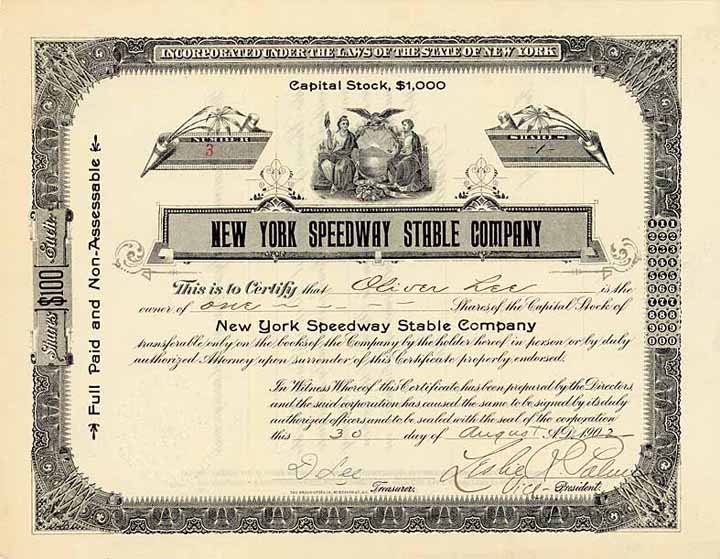 INCORPORATED UNDER THE LAWS OF THE STATE OF NEW YORK
Capital Stock, $1,000
NUMBER
3
SHARES
-1-
NEW YORK SPEEDWAY STABLE COMPANY
Full Paid and Non-Assessable
Shares $100 Each
This is to Certify that Oliver Lee is the
owner of one Shares of the Capital Stock of
New York Speedway Stable Company
transferable only on the books of the Company by the holder hereof in person or by duly
authorized Attorney upon surrender of this Certificate properly endorsed.
In Witness Whereof this Certificate has been prepared by the Directors,
and the said corporation has caused the same to be signed by its duly
authorized officers and to be sealed with the seal of the corporation
this 30 day of August A.D. 1902
D Lee
Treasurer.
Leslie
Vice- President.
111
222
333
444
555
666
777
888
999
000